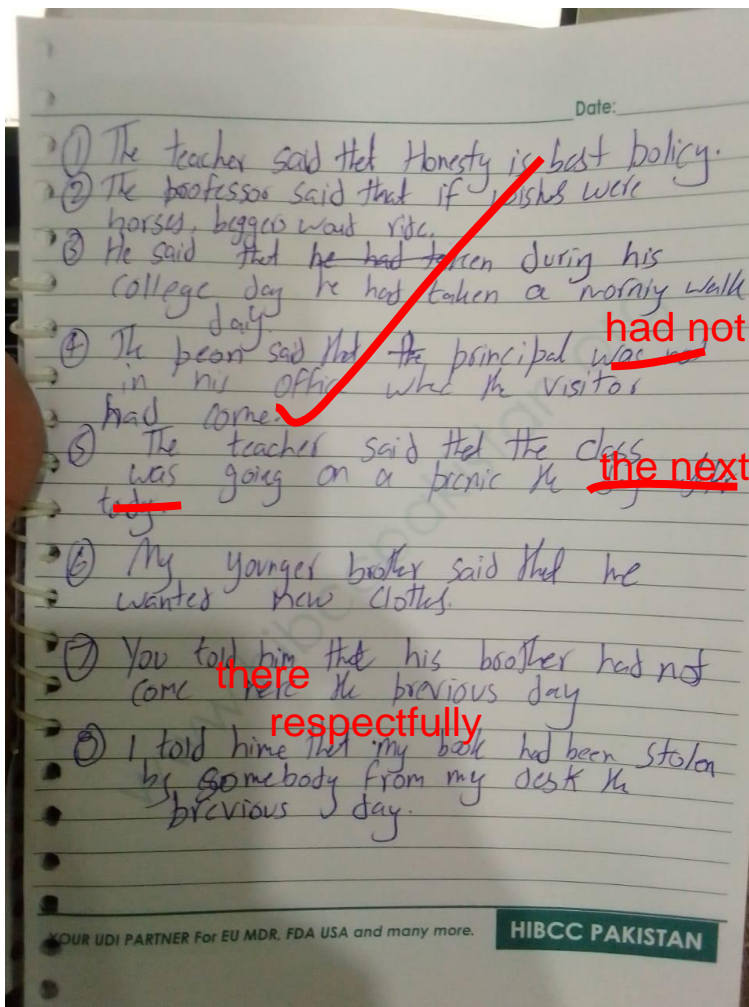 Date:
① The teacher said thet Honesty is best policy.
② The professor said that if wishes were
horses, beggers woud ride.
③ He said that he had taken during his
college day he had taken a morniy walk
daiy.
had not
④ The peon said that the principal was not
in his office when the visitor
had come.
⑤ The teacher said thet the class
the next
was going on a picnic the day
today.
⑥ My younger brother said that he
wanted new clothes.
⑦ You told him that his brother had not
there
come here the previous day
respectfully
⑧ I told hime that my book had been stolen
by somebody from my desk the
previous day.
YOUR UDI PARTNER For EU MDR, FDA USA and many more.
HIBCC PAKISTAN